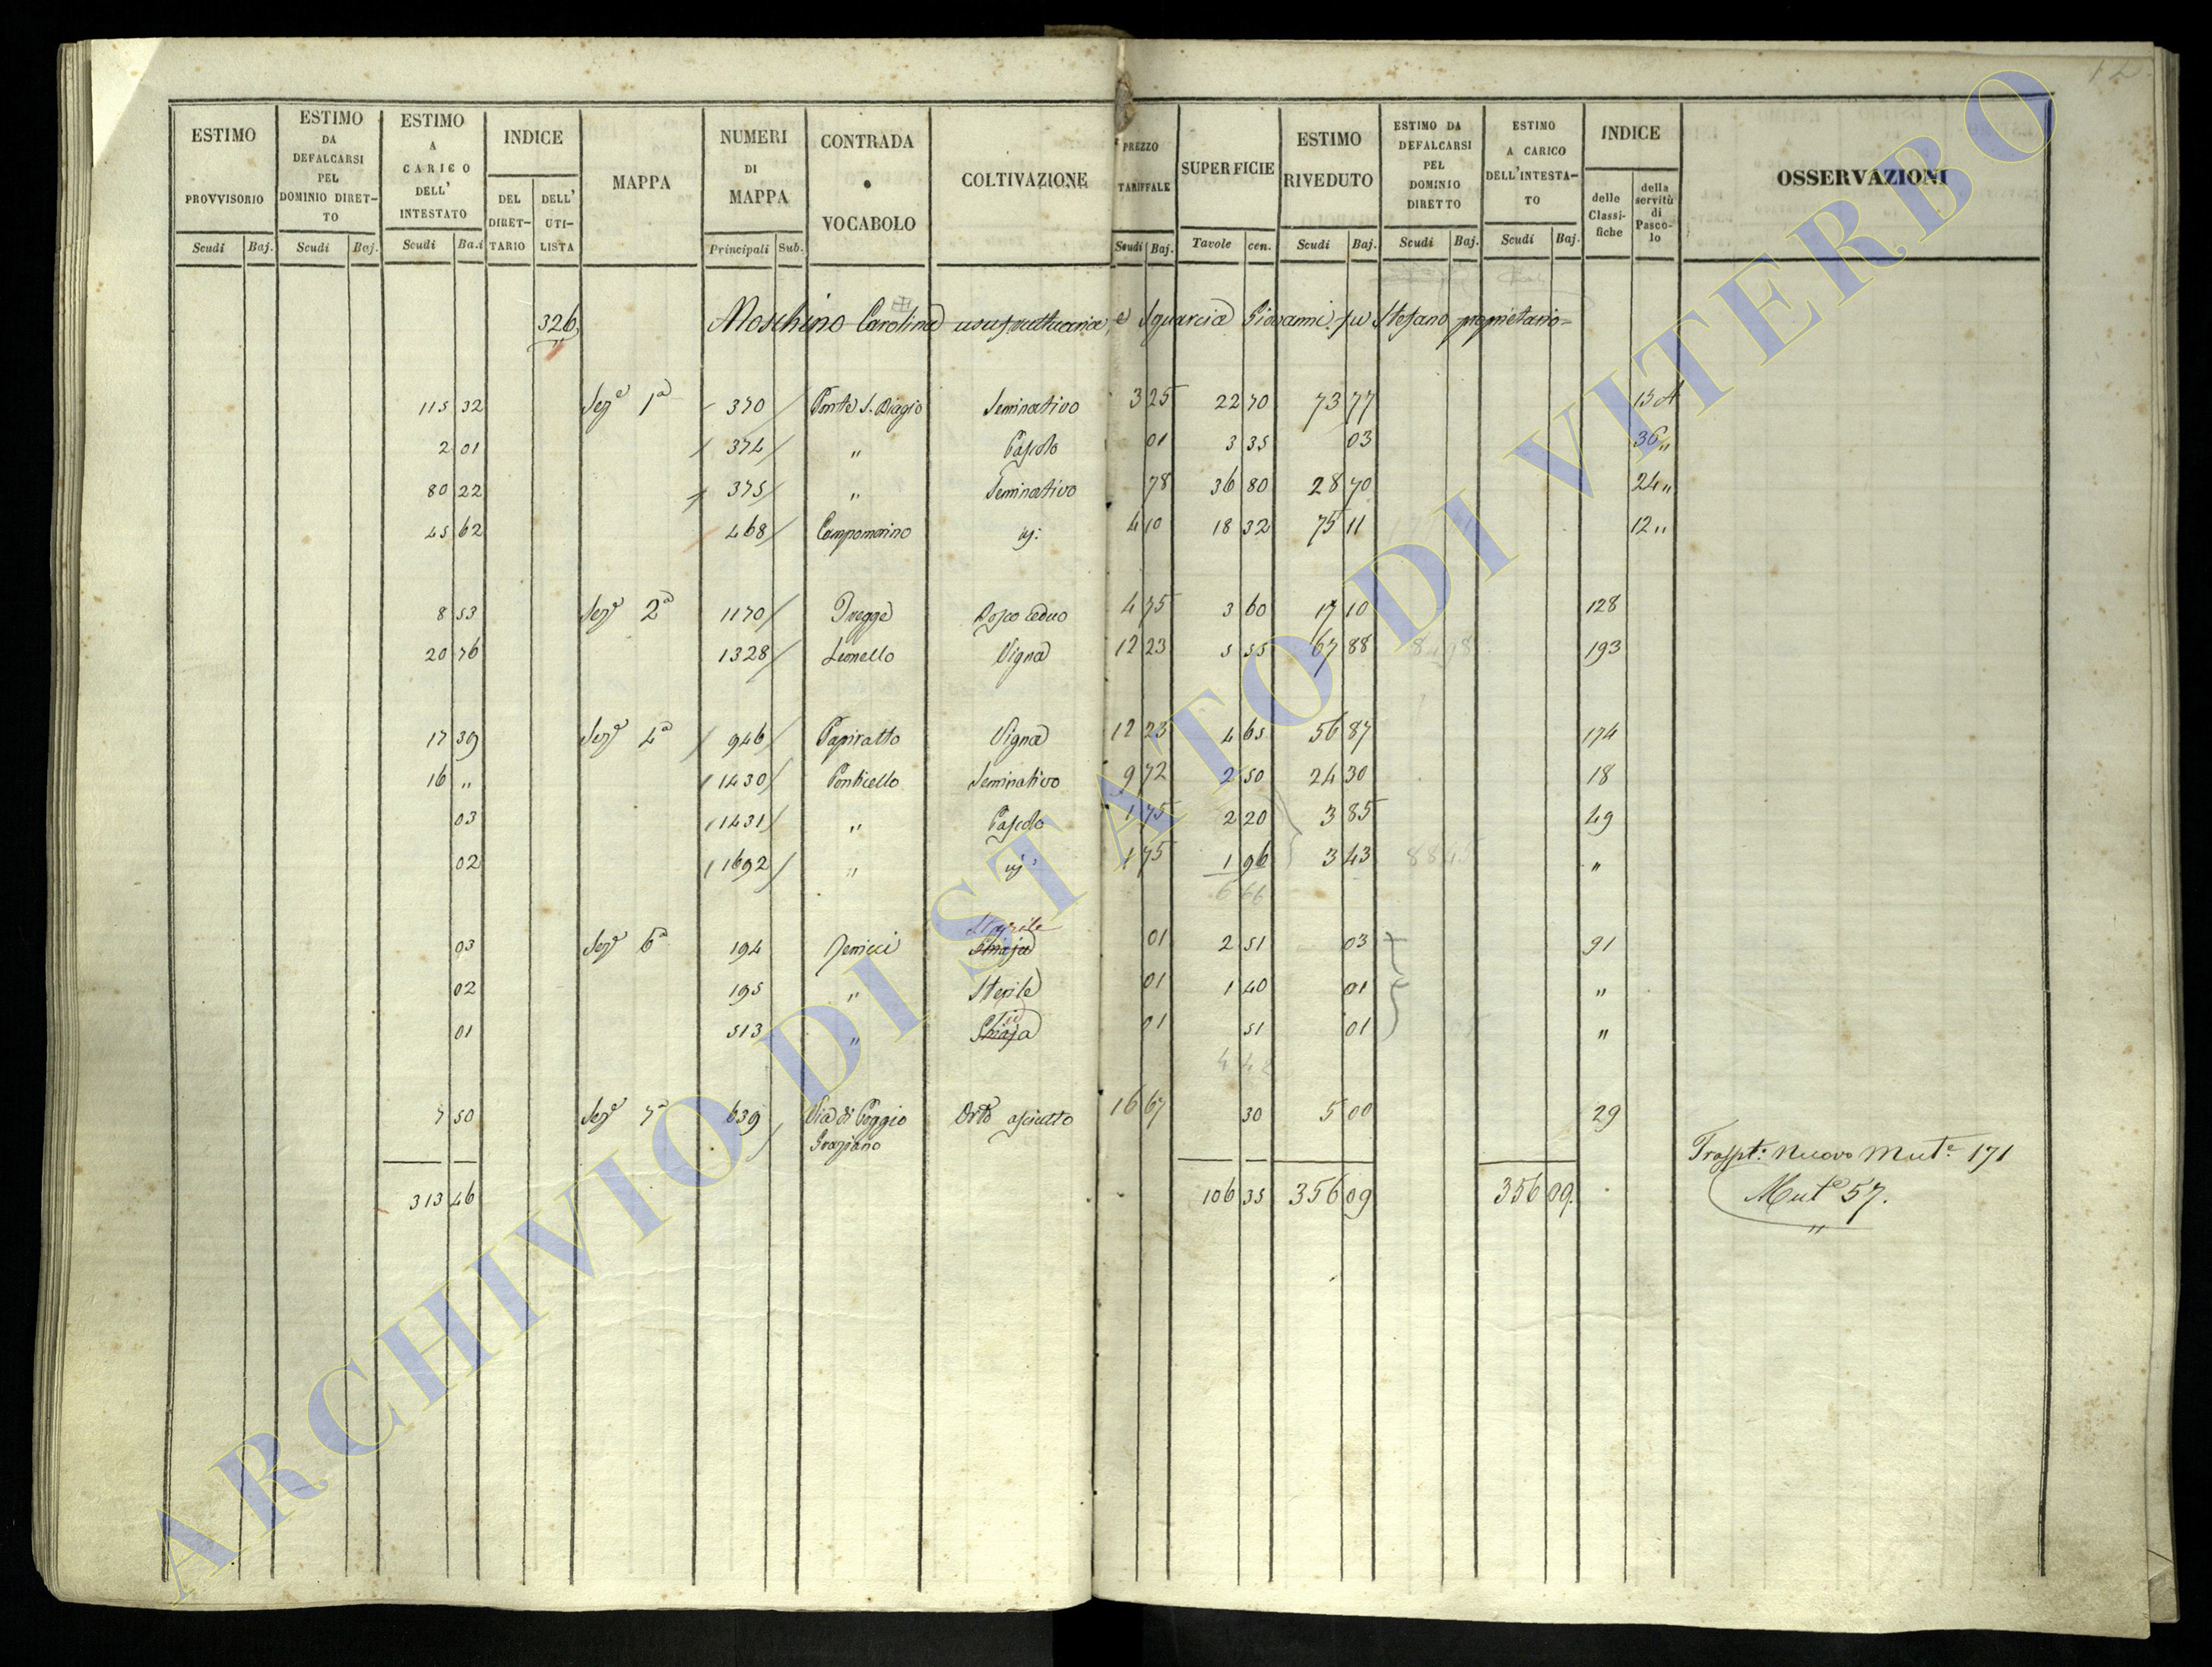 12
ESTIMO PROVVISORIO Scudi Baj.
ESTIMO DA DEFALCARSI PEL DOMINIO DIRETTO Scudi Baj.
ESTIMO A CARICO DELL' INTESTATO Scudi Ba.i
INDICE DEL DIRETTARIO DELL' UTILISTA
MAPPA
NUMERI DI MAPPA Principali Sub.
CONTRADA o VOCABOLO
COLTIVAZIONE
PREZZO TARIFFALE Scudi Baj.
SUPERFICIE Tavole cen.
ESTIMO RIVEDUTO Scudi Baj.
ESTIMO DA DEFALCARSI PEL DOMINIO DIRETTO Scudi Baj.
ESTIMO A CARICO DELL'INTESTATO Scudi Baj.
INDICE delle Classifiche della servitù di Pascolo
OSSERVAZIONI
326 Moschino Carolina usufruttuaria, e Sguarcia Giovanni fu Stefano proprietario
115 32 Seze 1a 370 Ponte S. Biagio Seminativo 3 25 22 70 73 77 13 A
2 01 374 " Pascolo 01 3 35 03 36 "
80 22 375 " Seminativo 78 36 80 28 70 24 "
45 62 468 Campomorino 4 10 18 32 75 11 12 "
8 53 Seze 2a 1170 Bosco ceduo 4 75 3 60 17 10 128
20 76 1328 Leonello Vigna 12 23 5 55 67 88 193
17 39 Seze 4a 946 Papiratto Vigna 12 23 4 65 56 87 174
16 " 1430 Ponticello Seminativo 9 72 2 50 24 30 18
03 1431 " Pascolo 1 75 2 20 3 85 49
02 1692 " 1 75 1 96 3 43 "
6 66
03 Seze 6a 194 Sterile 01 2 51 03 91
02 195 " Sterile 01 1 40 01 "
01 513 " 01 51 01 "
4 42
7 50 Seze 7a 639 Via di Poggio Graziano Orto asciutto 16 67 30 5 00 29
Traspto: Nuovo Mute 171
313 46 106 35 356 09 356 09. Mute 57.
ARCHIVIO DI STATO DI VITERBO